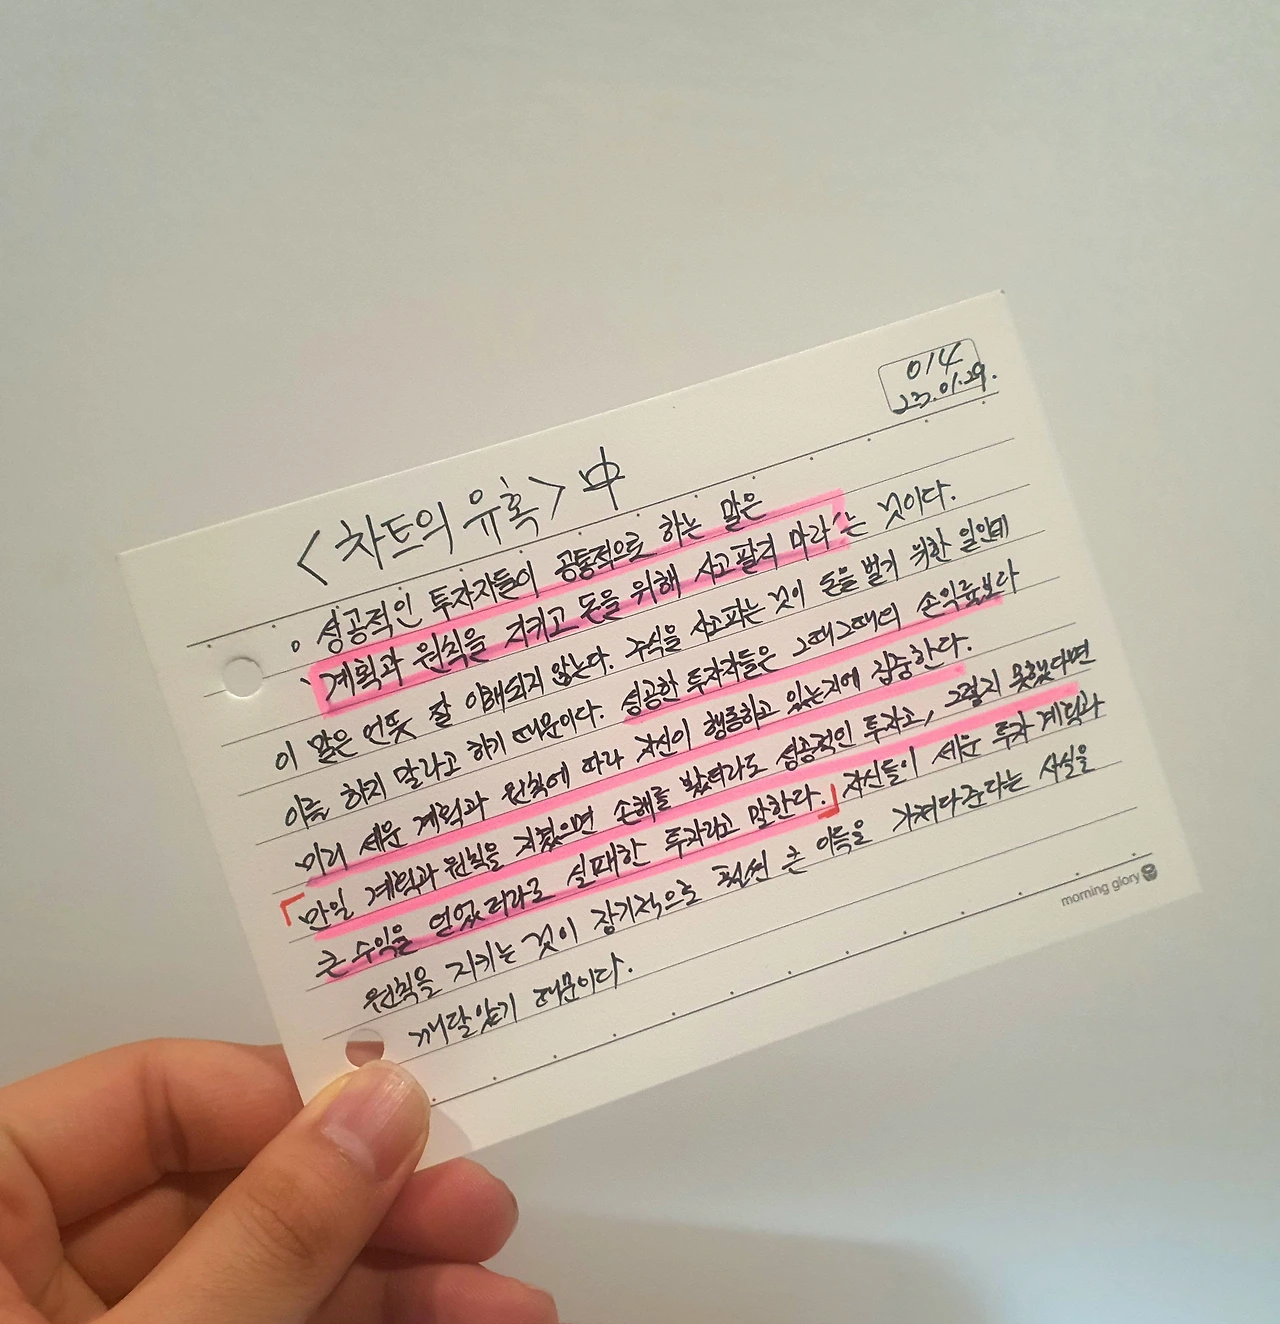 014
23.01.29.
<차트의 유혹> 中
。성공적인 투자자들이 공통적으로 하는 말은
'계획과 원칙을 지키고 돈을 위해 사고팔지 마라'는 것이다.
이 말은 언뜻 잘 이해되지 않는다. 주식을 사고파는 것이 돈을 벌기 위한 일인데
이를 하지 말라고 하기 때문이다. 성공한 투자자들은 그때그때의 손익률보다
미리 세운 계획과 원칙에 따라 자신이 행동하고 있는지에 집중한다.
「만일 계획과 원칙을 지켰으면 손해를 봤더라도 성공적인 투자고, 그렇지 못했다면
큰 수익을 얻었더라도 실패한 투자라고 말한다.」 자신들이 세운 투자 계획과
원칙을 지키는 것이 장기적으로 훨씬 큰 이득을 가져다준다는 사실을
깨달았기 때문이다.
morning glory